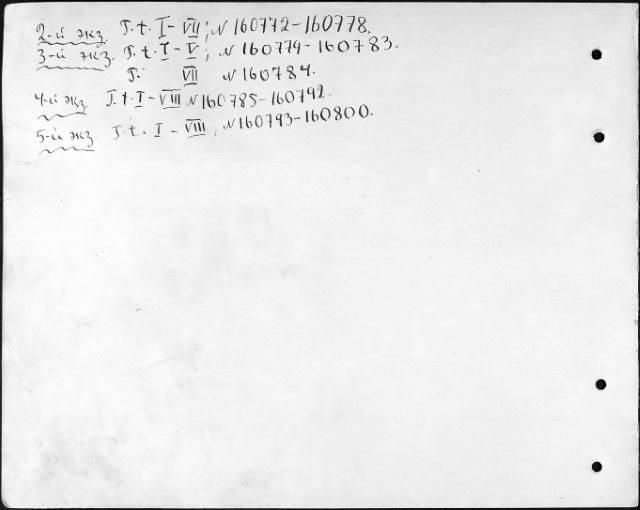 2-й экз. T. t. I - VII; N 160772-160778.
3-й экз. T. t. I - V; N 160779-160783.
T. VII N 160784.
4-й экз. T. t. I - VIII N 160785-160792.
5-й экз. T. t. I - VIII, N 160793-160800.